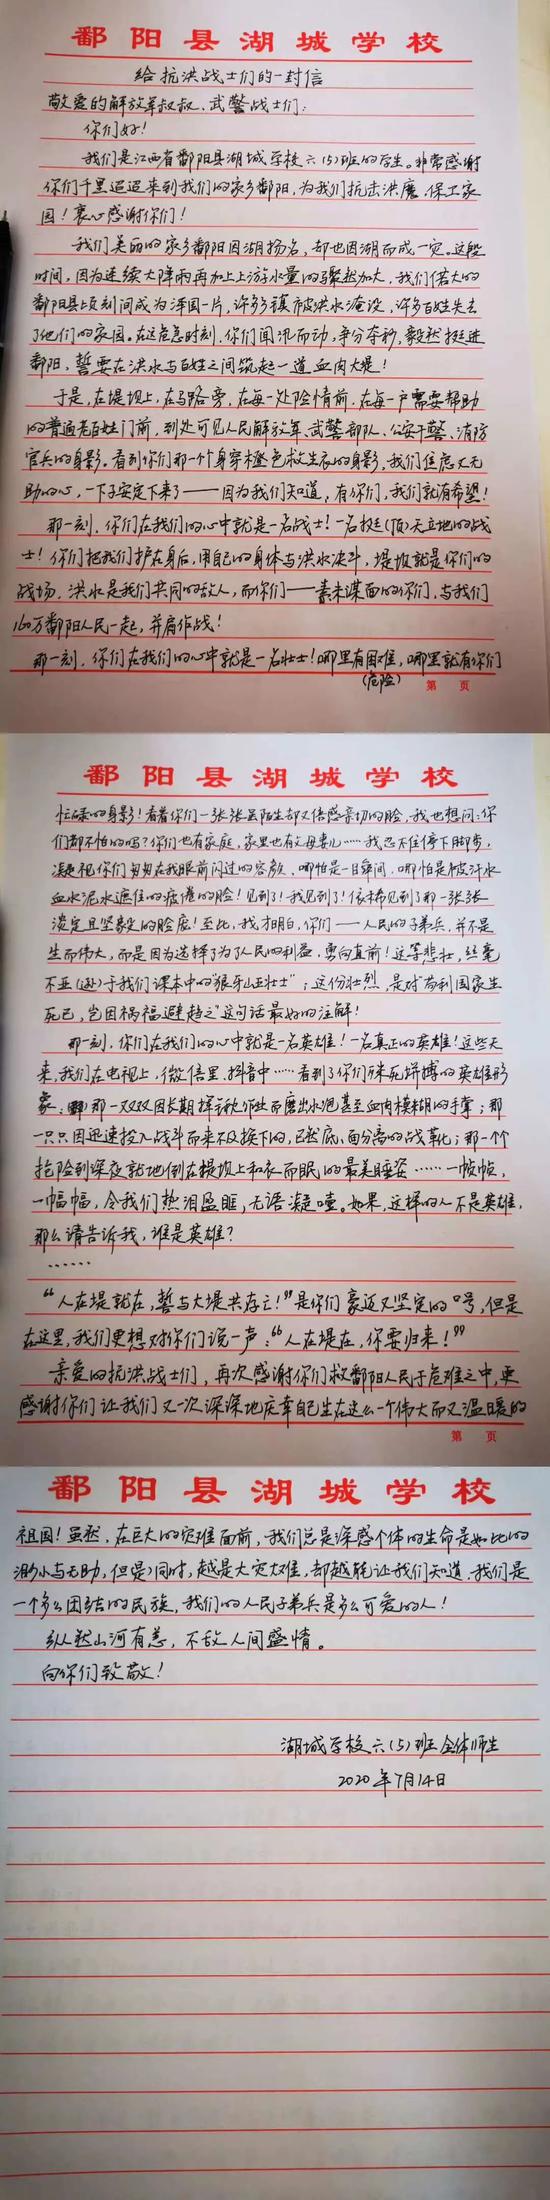 鄱阳县湖城学校
给抗洪战士们的一封信
敬爱的解放军叔叔、武警战士们：
你们好！
我们是江西省鄱阳县湖城学校六(5)班的学生。非常感谢
你们千里迢迢来到我们的家乡鄱阳，为我们抗击洪魔、保卫家
园！衷心感谢你们！
我们美丽的家乡鄱阳因湖扬名，却也因湖而成一灾。这段
时间，因为连续大降雨再加上上游水量的骤然加大，我们偌大的
鄱阳县顷刻间成为泽国一片，许多乡镇被洪水淹没，许多百姓失去
了他们的家园。在这危急时刻，你们闻汛而动，争分夺秒，毅然挺进
鄱阳，誓要在洪水与百姓之间筑起一道血肉大堤！
于是，在堤坝上，在马路旁，在每一处险情前，在每一户需要帮助
的普通老百姓门前，到处可见人民解放军、武警部队、公安干警、消防
官兵的身影。看到你们那一个身穿橙色救生衣的身影，我们焦虑又无
助的心，一下子安定下来了——因为我们知道，有你们，我们就有希望！
那一刻，你们在我们的心中就是一名战士！一名挺(顶)天立地的战
士！你们把我们护在身后，用自己的身体与洪水决斗，堤坡就是你们的
战场，洪水是我们共同的敌人，而你们——素未谋面的你们，与我们
160万鄱阳人民一起，并肩作战！
那一刻，你们在我们的心中就是一名壮士！哪里有困难，哪里就有你们
(危险)
第 页
鄱阳县湖城学校
忙碌的身影！看着你们一张张虽陌生却又倍感亲切的脸，我也想问：你
们都不怕的吗？你们也有家庭，家里也有父母妻儿……我忍不住停下脚步，
凝视你们匆匆在我眼前闪过的容颜，哪怕是一瞬间，哪怕是被汗水
血水泥水遮住的疲倦的脸！见到了！我见到了！依稀见到了那一张张
淡定且坚毅的脸庞！至此，我才明白，你们——人民的子弟兵，并不是
生而伟大，而是因为选择了为了人民的利益，勇向直前！这等悲壮，丝毫
不亚(逊)于我们课本中的“狼牙山五壮士”；这份壮烈，是对“苟利国家生
死已，岂因祸福避趋之”这句话最好的注解！
那一刻，你们在我们的心中就是一名英雄！一名真正的英雄！这些天
来，我们在电视上，微信里，抖音中……看到了你们殊死拼搏的英雄形
象：那一双双因长期挥锹作业而磨出水泡甚至血肉模糊的手掌；那
一只只因迅速投入战斗而来不及换下的，已然底、面分离的战靴；那一个个
抢险到深夜就地倒在堤坝上和衣而眠的最美睡姿……一帧帧，
一幅幅，令我们热泪盈眶，无语凝噎。如果，这样的人不是英雄，
那么请告诉我，谁是英雄？
……
“人在堤就在，誓与大堤共存亡！”是你们豪迈又坚定的口号，但是
在这里，我们更想对你们说一声：“人在堤在，你要归来！”
亲爱的抗洪战士们，再次感谢你们救鄱阳人民于危难之中，更
感谢你们让我们又一次深深地庆幸自己生在这么一个伟大而又温暖的
第 页
鄱阳县湖城学校
祖国！虽然，在巨大的灾难面前，我们总是深感个体的生命是如此的
渺小与无助，但是同时，越是大灾大难，却越能让我们知道，我们是
一个多么团结的民族，我们的人民子弟兵是多么可爱的人！
纵然山河有恙，不敌人间盛情。
向你们致敬！
湖城学校六(5)班全体师生
2020年7月14日